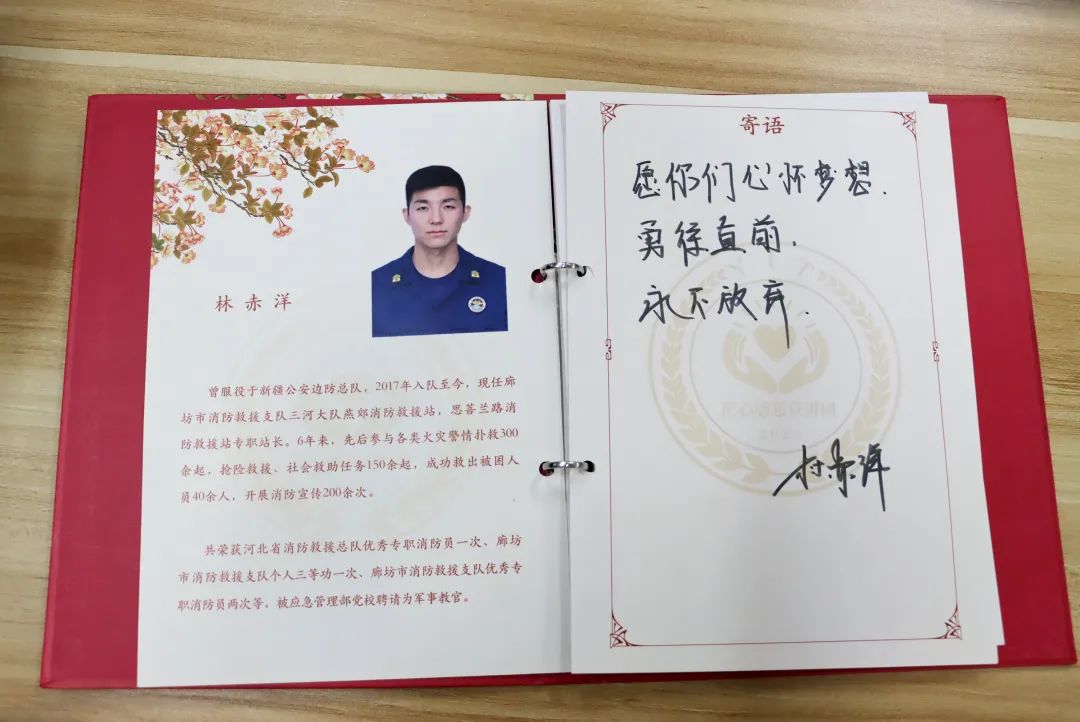 林赤洋
曾服役于新疆公安边防总队，2017年入队至今，现任廊
坊市消防救援支队三河大队燕郊消防救援站，思菩兰路消
防救援站专职站长。6年来，先后参与各类火灾警情扑救300
余起，抢险救援、社会救助任务150余起，成功救出被困人
员40余人，开展消防宣传200余次。
共荣获河北省消防救援总队优秀专职消防员一次、廊坊
市消防救援支队个人三等功一次、廊坊市消防救援支队优秀专
职消防员两次等，被应急管理部党校聘请为军事教官。
寄语
愿你们心怀梦想.
勇往直前.
永不放弃.
林赤洋